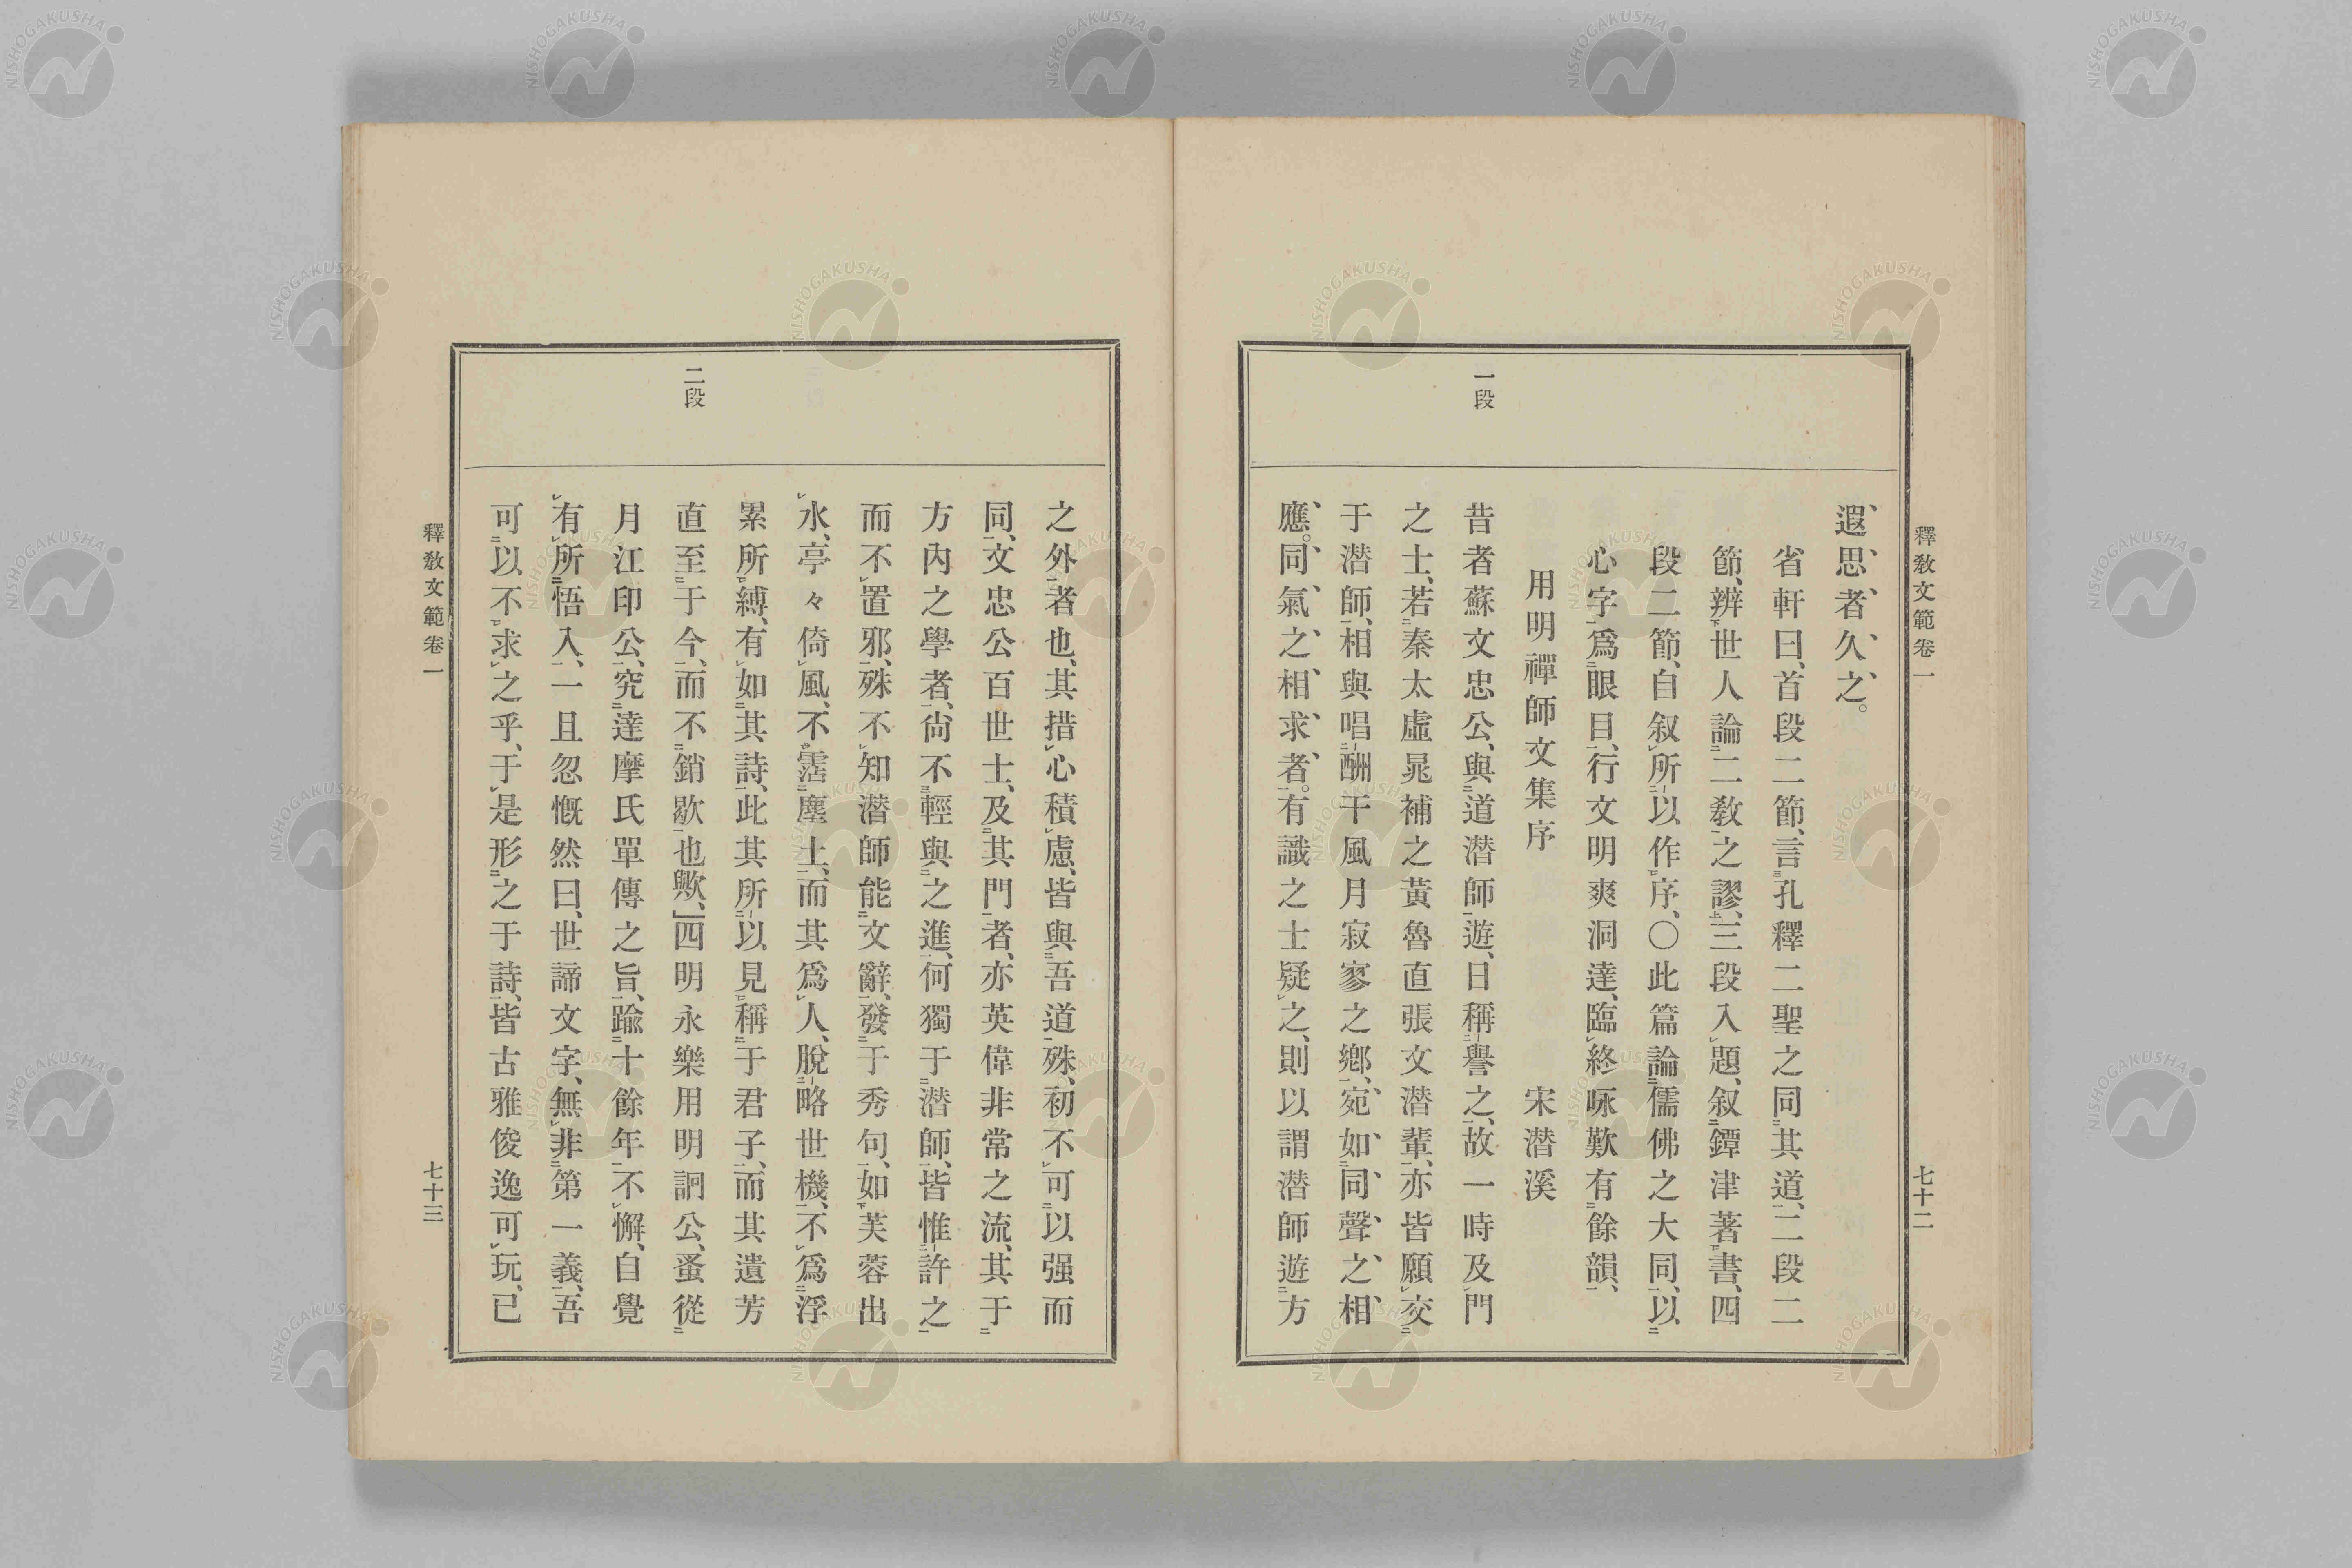 釋敎文範卷一
七十二
遐思者久之。
省軒曰、首段二節、言孔釋二聖之同其道、二段二
節、辨世人論二敎之謬、三段入題、叙鐔津著書、四
段二節、自叙所以作序、〇此篇論儒佛之大同、以
心字爲眼目、行文明爽洞達、臨終咏歎有餘韻、
用明禪師文集序 宋潛溪
一段
昔者蘇文忠公、與道潛師遊、日稱譽之、故一時及門
之士、若秦太虛晁補之黃魯直張文潛輩、亦皆願交
于潛師、相與唱酬于風月寂寥之鄕、宛如同聲之相
應。同氣之相求者。有識之士疑之、則以謂潛師遊方
之外者也、其措心積慮、皆與吾道殊、初不可以强而
同、文忠公百世士、及其門者、亦英偉非常之流、其于
方內之學者、尙不輕與之進、何獨于潛師、皆惟許之
而不置邪、殊不知潛師能文辭、發于秀句、如芙蓉出
水、亭々倚風、不霑塵土、而其爲人、脫略世機、不爲浮
累所縛、有如其詩、此其所以見稱于君子、而其遺芳
二段
直至于今、而不銷歇也歟、」四明永樂用明詗公、蚤從
月江印公、究達摩氏單傳之旨、踰十餘年不懈、自覺
有所悟入、一旦忽慨然曰、世諦文字、無非第一義、吾
可以不求之乎、于是形之于詩、皆古雅俊逸可玩、已
釋敎文範卷一
七十三